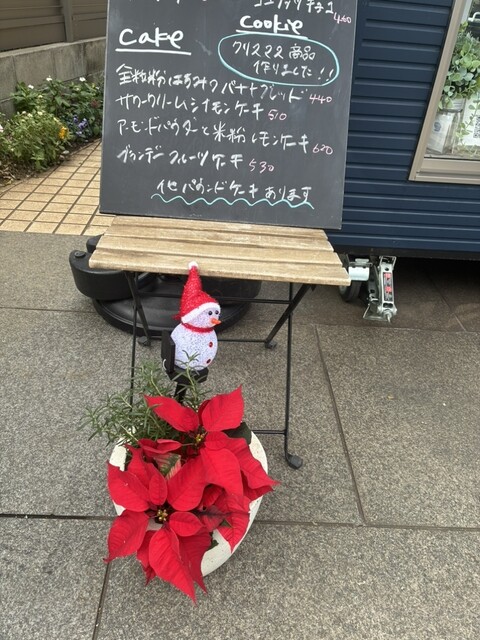 ココナッツ チョコ 460
Cake
Cookie
クリスマス商品
作りました!!
全粒粉はちみつバナナブレッド 440
サワークリームレモンケーキ 510
アーモンドパウダーと米粉レモンケーキ 620
ブランデーフルーツケーキ 530
他パウンドケーキあります